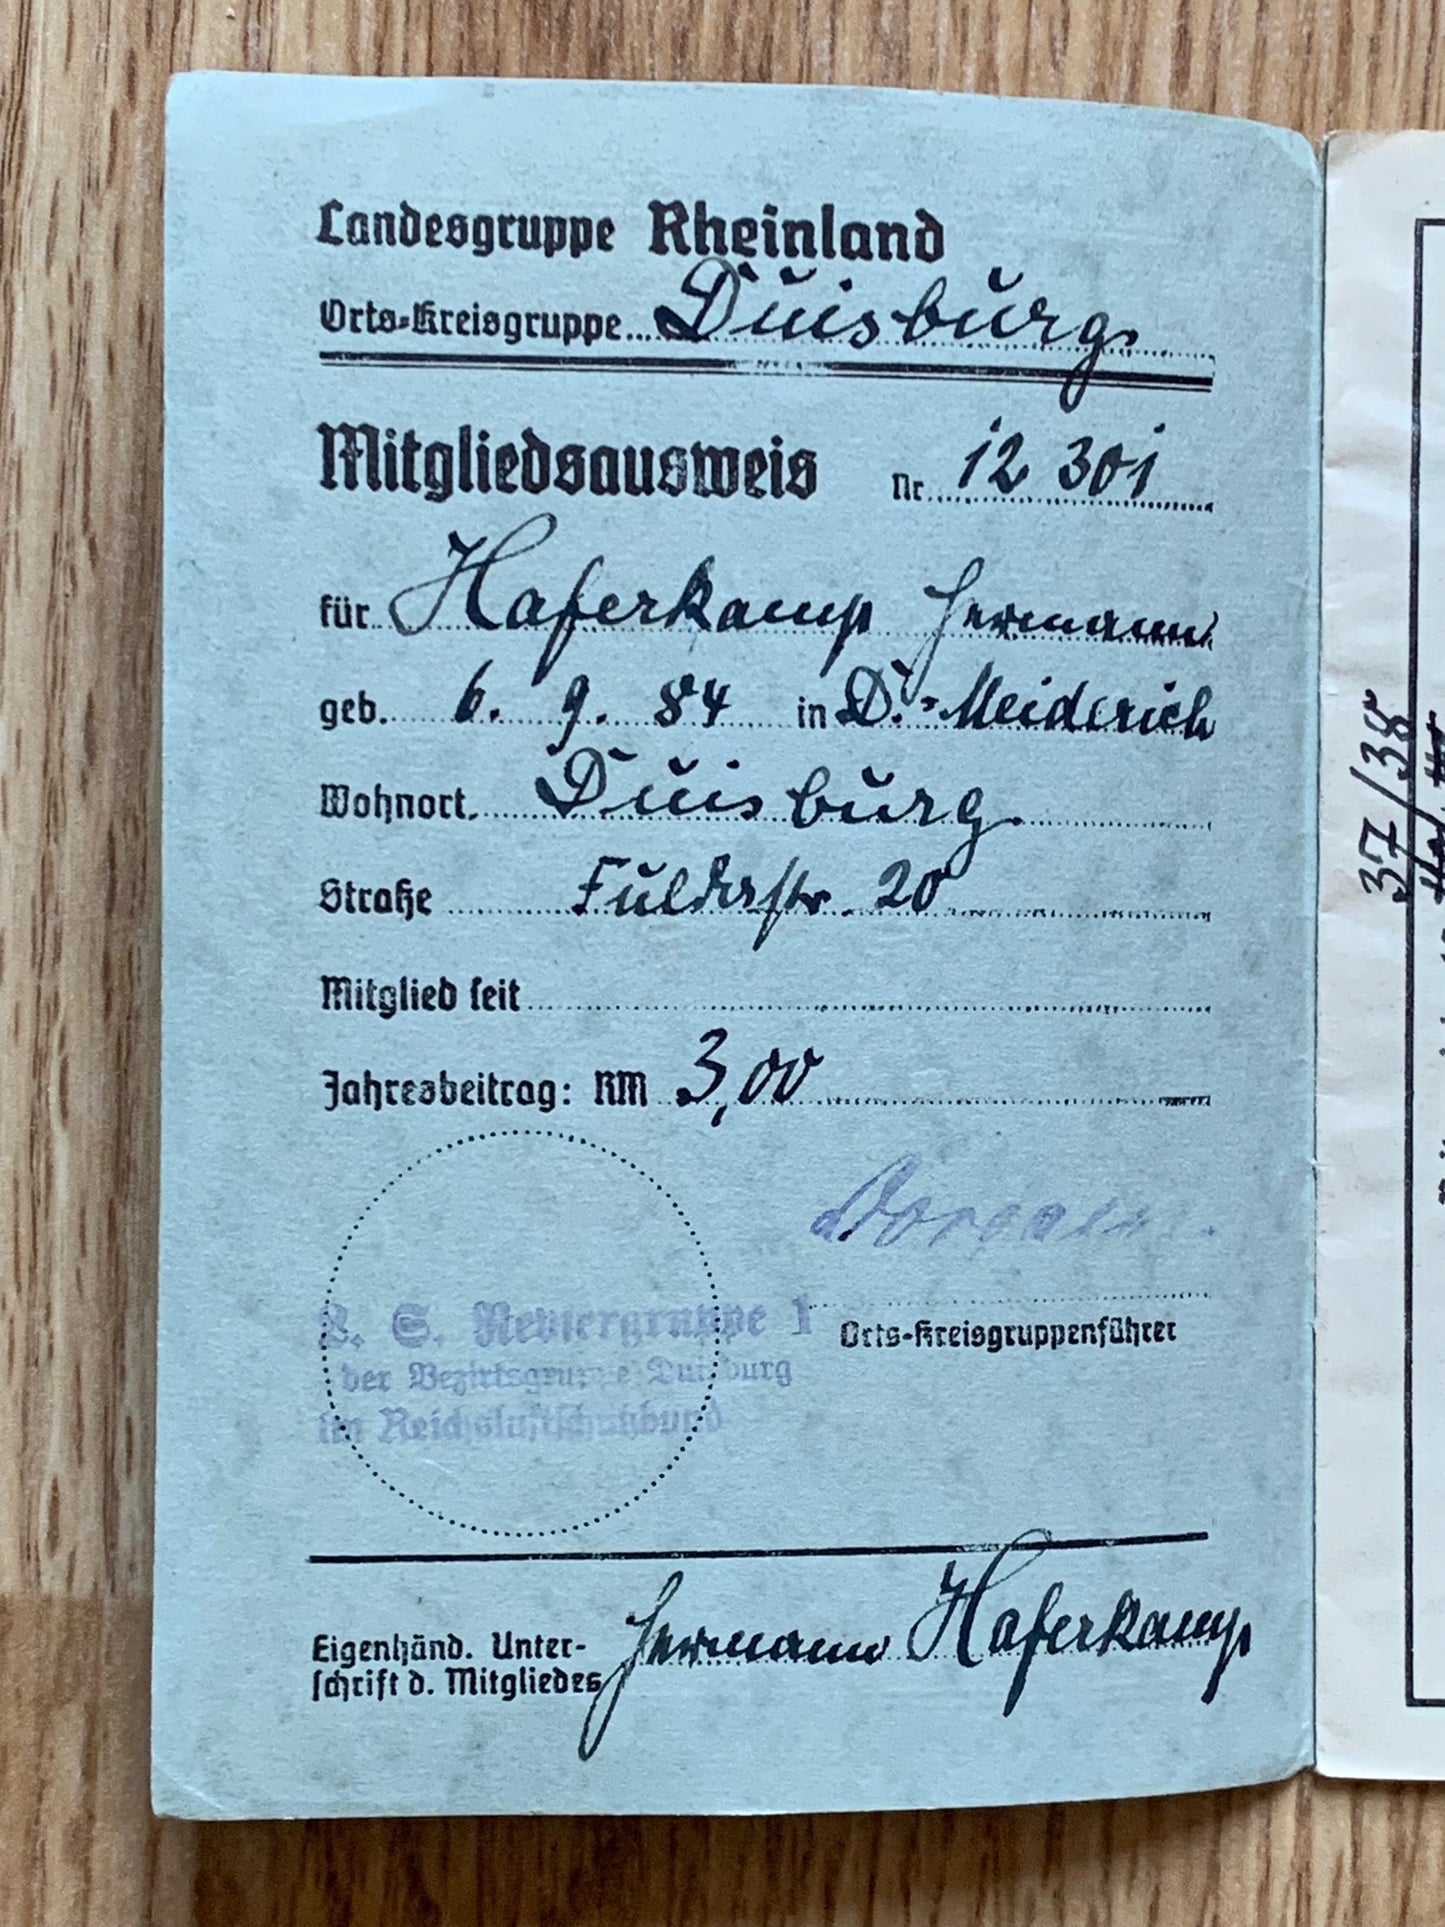 Landesgruppe Rheinland
Orts-Kreisgruppe Duisburg
Mitgliedsausweis Nr. 12 301
für Haferkamp Hermann
geb. 6. 9. 84 in D.-Meiderich
Wohnort Duisburg
Straße Fuldastr. 20
Mitglied seit
Jahresbeitrag: RM 3,00
L. S. Reviergruppe 1
der Bezirksgruppe Duisburg
im Reichsluftschutzbund
Orts-Kreisgruppenführer
Eigenhänd. Unter-
schrift d. Mitgliedes Hermann Haferkamp
37/38